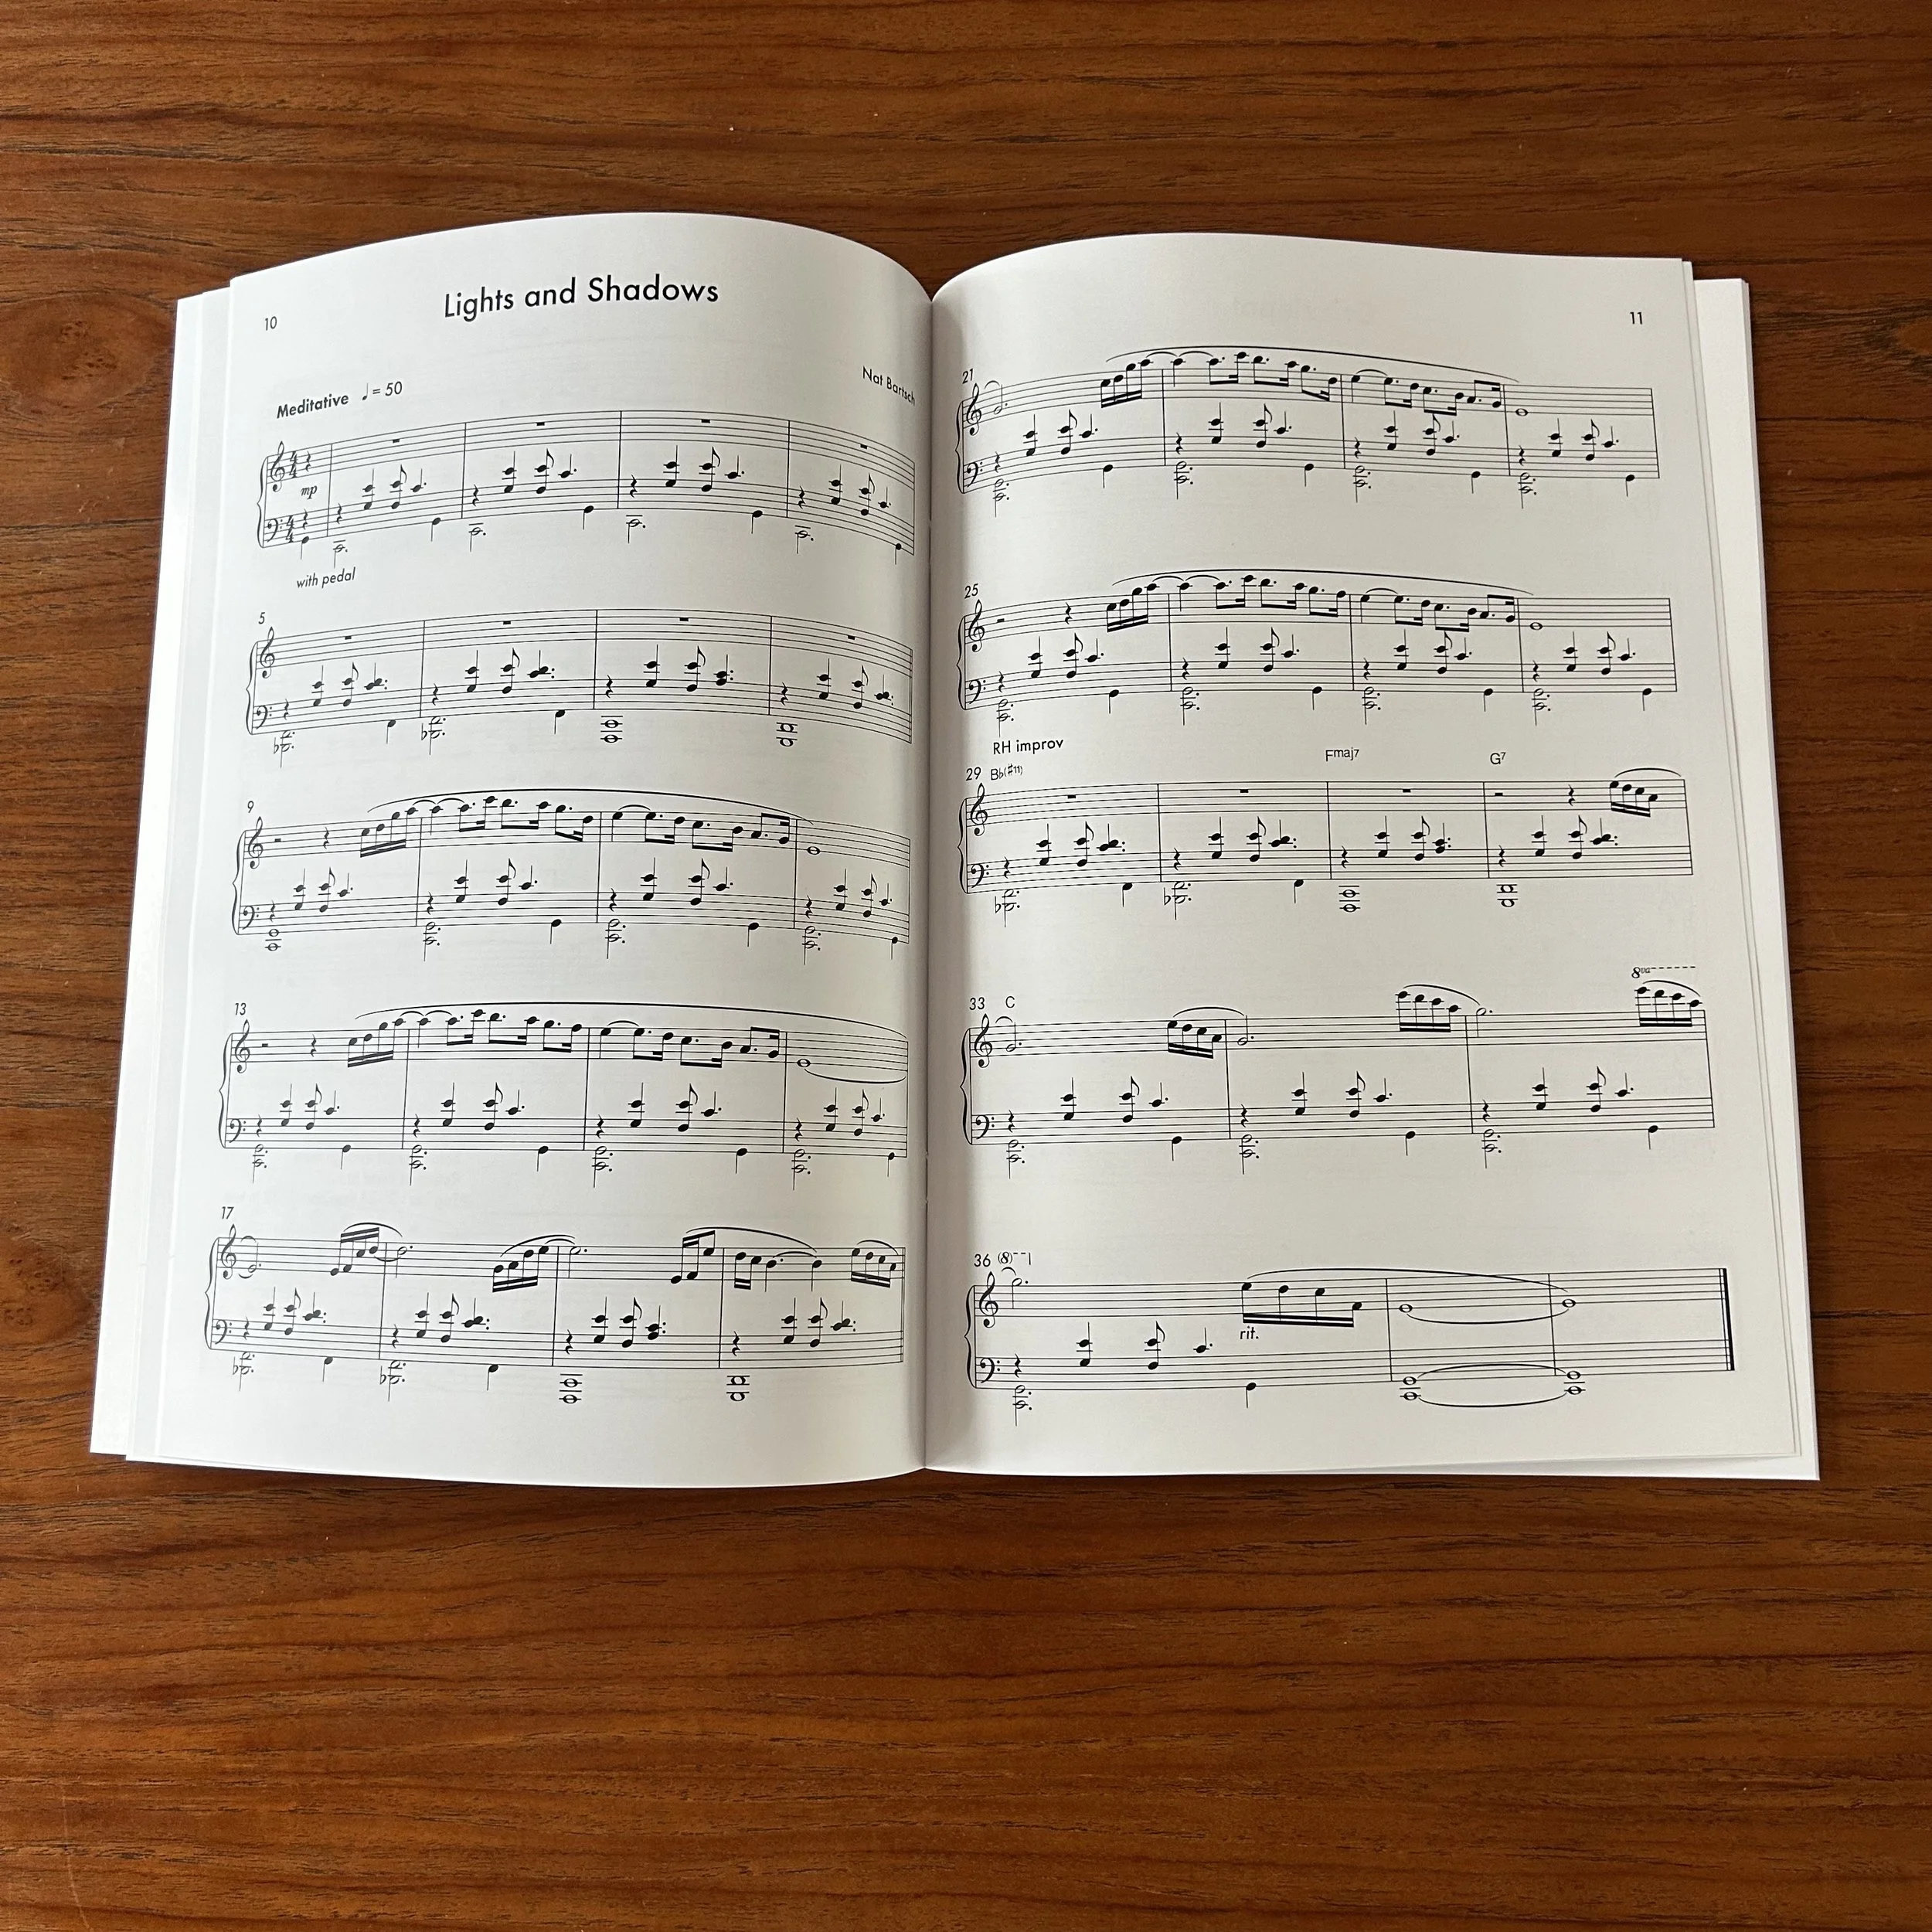 10
Lights and Shadows
Nat Bartsch
Meditative ♩= 50
mp
with pedal
5
9
13
17
11
21
25
RH improv
29 B♭(♯11) Fmaj7 G7
8va
33 C
36 (8)
rit.